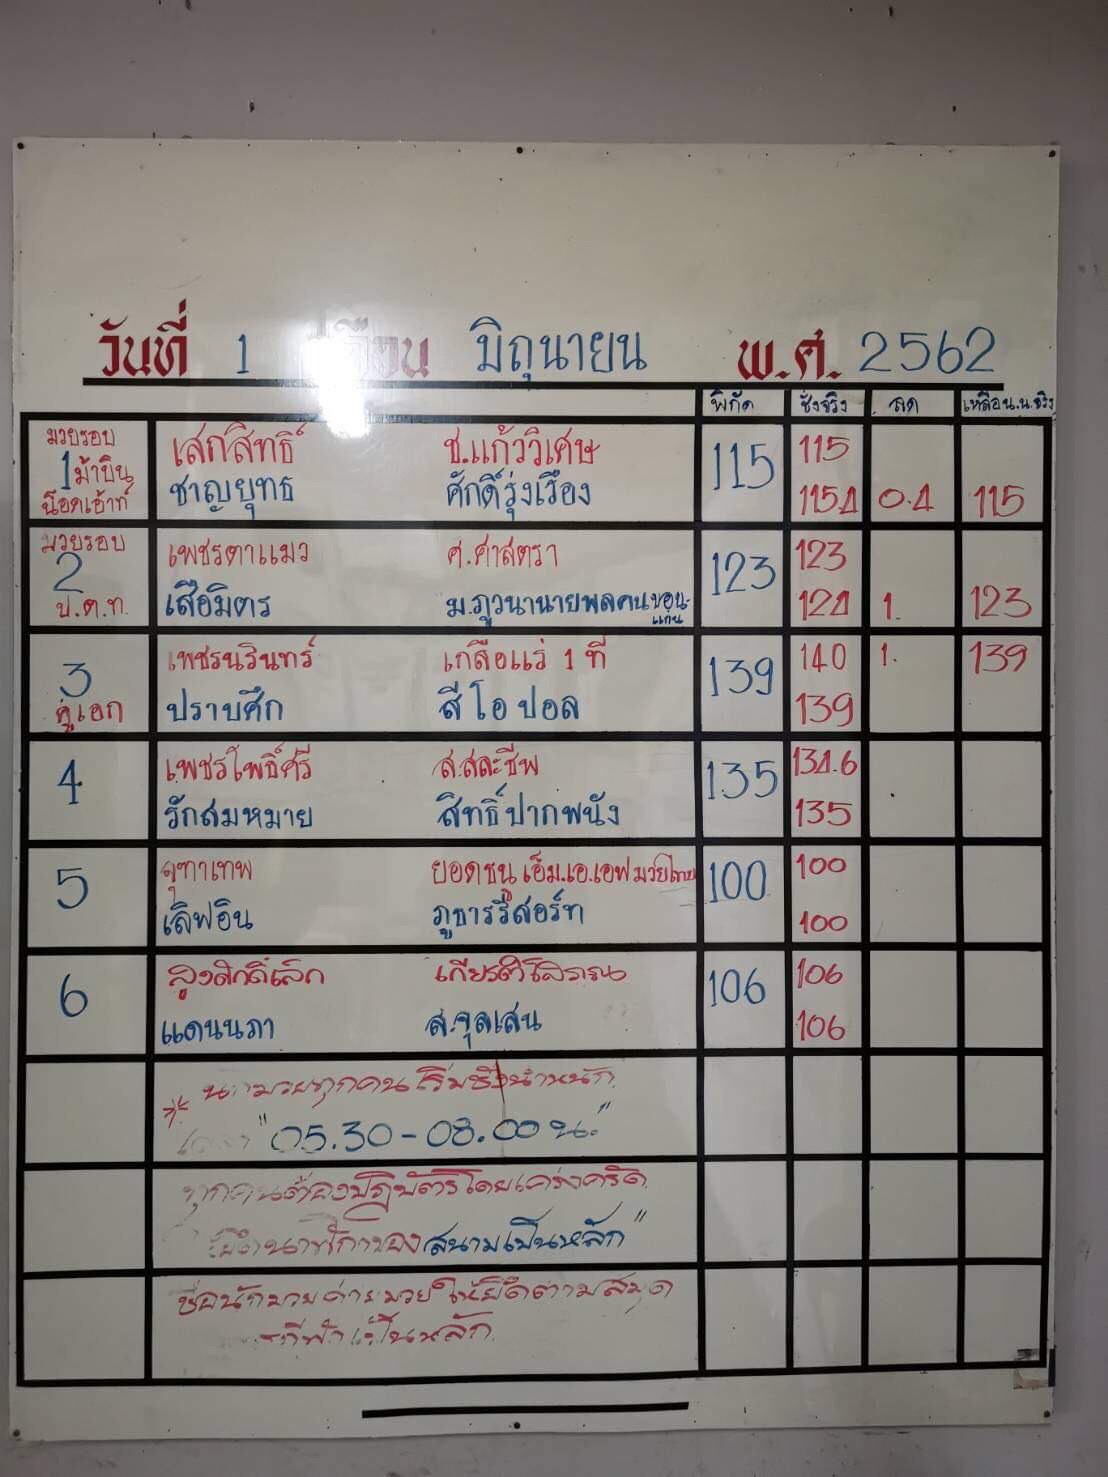 วันที่ 1 เดือน มิถุนายน พ.ศ. 2562
พิกัด ชั่งจริง ลด เหลือน.น.จริง
มวยรอบ
1 ม้าบิน
น๊อคเอ้าท์
เสกสิทธิ์ ช.แก้ววิเศษ 115 115
ชาญยุทธ ศักดิ์รุ่งเรือง 115.4 0.4 115
มวยรอบ
2
ป.ต.ท.
เพชรตาแมว ศ.ศาสตรา 123 123
เสือมิตร ม.ภูวนานายพลคนขอนแก่น 124 1. 123
3
คู่เอก
เพชรนรินทร์ เกลือแร่ 1 ที 139 140 1. 139
ปราบศึก สี โอ ปอล 139
4
เพชรโพธิ์ศรี ส.สละชีพ 135 134.6
รักสมหมาย สิทธิ์ปากพนัง 135
5
จุฑาเทพ ยอดชนู เอ็ม.เอ.เอฟ มวยไทย 100 100
เลิฟอิน ภูธารรีสอร์ท 100
6
สูงศักดิ์เล็ก 106 106
แดนนภา ส.จุลเสน 106
* นักมวยทุกคนเริ่มชั่งน้ำหนัก
เวลา "05.30-08.00 น."
ทุกคนต้องปฏิบัติโดยเคร่งครัด
นาฬิกาของสนามเป็นหลัก"
ชื่อนักมวย ค่ายมวย ให้ยึดตามสมุด
กีฬาเป็นหลัก